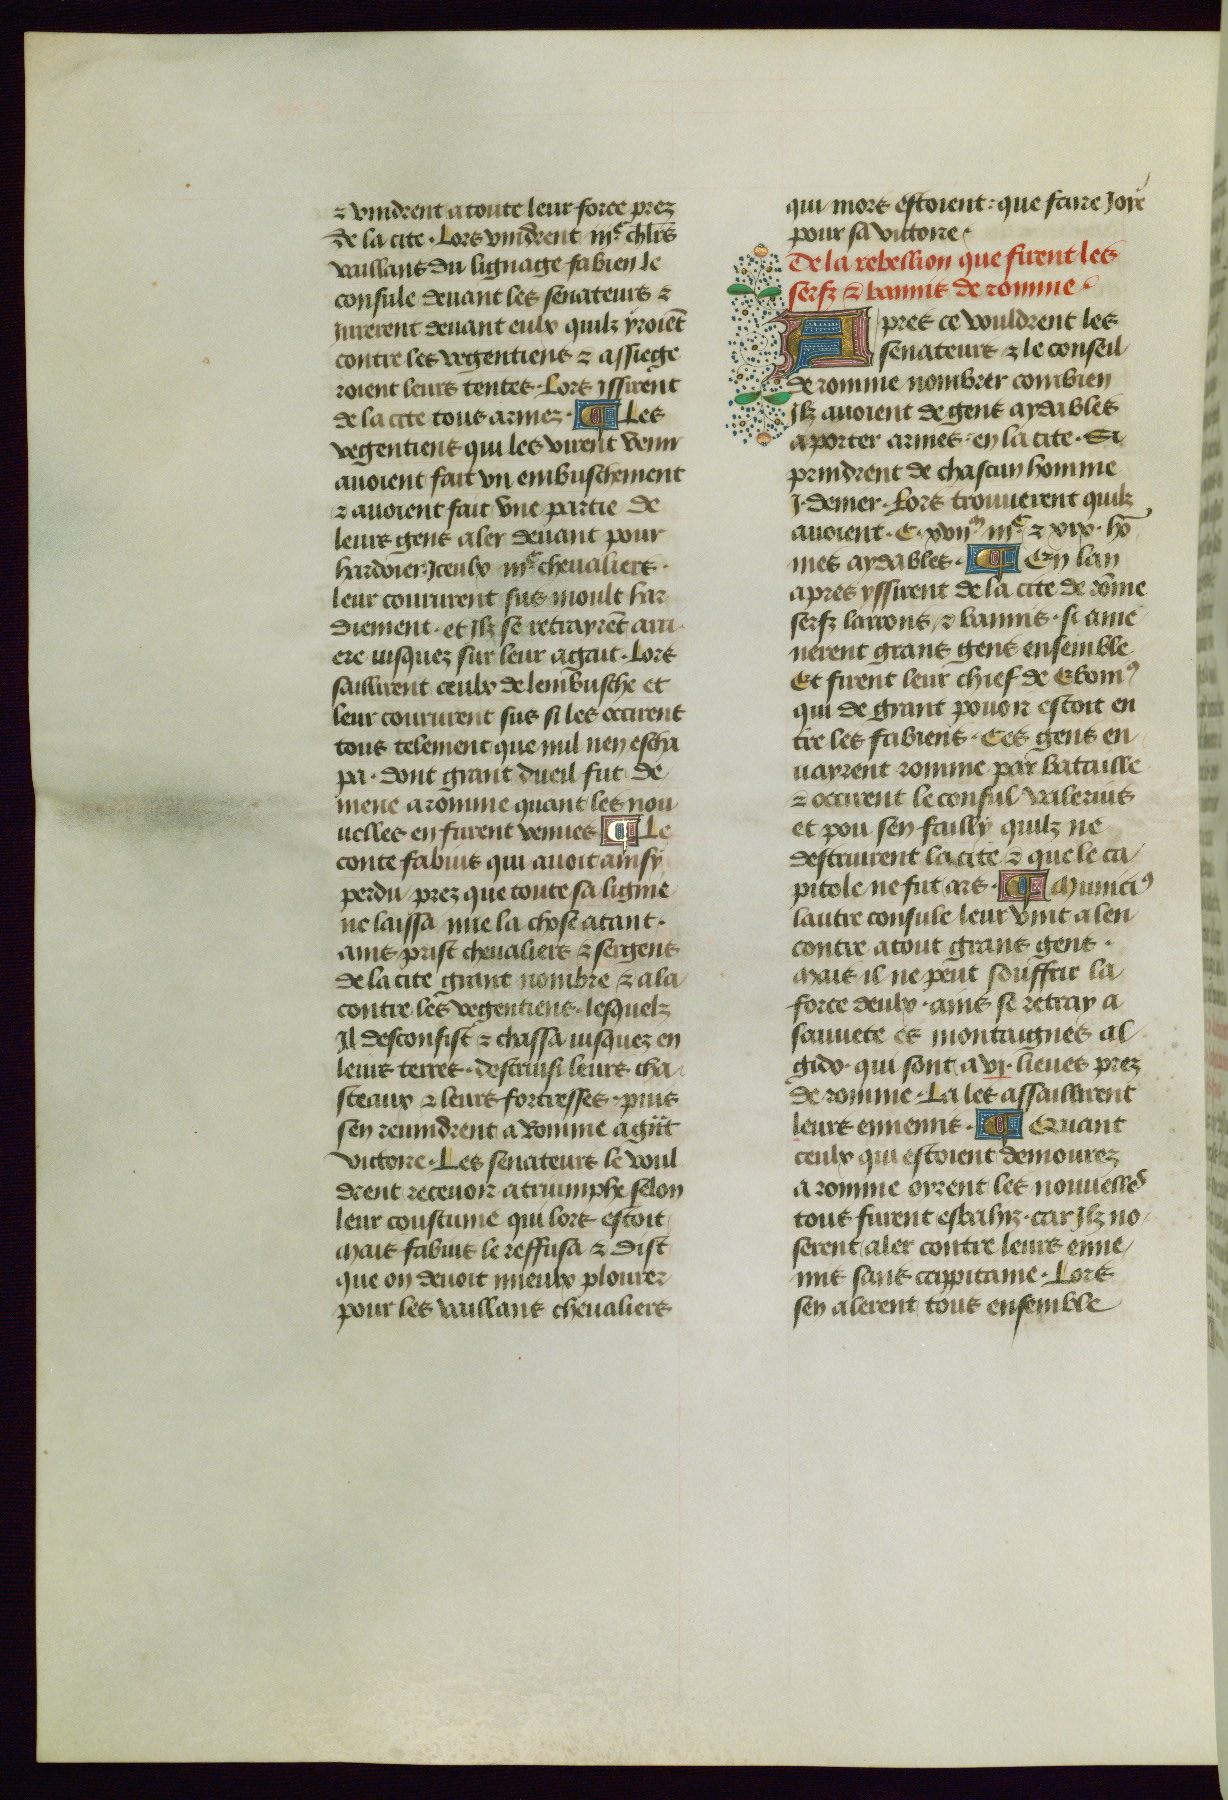 & vindrent a toute leur force prez
de la cite · Lors vindrent iiiᶜ chl̄rs
vaillans du lignage fabien le
consule deuant les senateurs &
Jurerent deuant eulx quilz yroiēt
contre les vegentiens & assiege
roient leurs tentes · Lors yssirent
de la cite tous armez · ¶ Les
vegentiens qui les virent venir
auoient fait vn embuschement
& auoient fait vne partie de
leurs gens aler deuant pour
hardoier Iceulx iiiᶜ cheualiers ·
leur coururent sus moult har
diement · et Ilz se retrayrēt arri
ere iusquez sur leur agait · Lors
saillirent ceulx de lembusche et
leur coururent sus si les occirent
tous telement que nul nen escha
pa · dont grant dueil fut de
mene a romme quant les nou
uelles en furent venues ¶ Le
conte fabius qui auoit ainsy
perdu prez que toute sa lignie
ne laissa mie la chose atant ·
ains prist cheualiers & sergens
de la cite grant nombre & ala
contre les vegentiens · lesquelz
Il desconfist & chassa iusquez en
leurs terres · destruisi leurs cha
steaux & leurs fortresses · puis
sen reuindrent a Romme a grāt
victoire · Les senateurs le voul
drent receuoir a triumphe selon
leur coustume qui lors estoit
Mais fabius le reffusa & dist
que on deuoit mieulx plourer
pour les vaillans cheualiers
qui mors estoient : que faire Joie
pour sa victoire ·
De la rebellion que firent les
serfz & bannis de romme ·
Apres ce vouldrent les
senateurs & le conseil
de romme nombrer combien
Ilz auoient de gens aydables
a porter armes en la cite · Si
prindrent de chascun homme
J · denier · Lors trouuerent quilz
auoient · C · xviiᵐ iiiᶜ & xix · hō
mes aydables · ¶ En lan
apres yssirent de la cite de rōme
serfz larrons & bannis · si ame
nerent grans gens ensemble
Et firent leur chief de Ebomꝰ
qui de grant pouoir estoit en
tre les fabiens · Ces gens en
uayrent romme par bataille
& occirent le consul valerius
et pou sen failly quilz ne
destruirent la cite & que le ca
pitole ne fut ars · ¶ Munciꝰ
lautre consule leur vint a len
contre a tout grans gens ·
Mais il ne peut souffrir la
force deulx · ains se retray a
sauuete es montaignes al
gido · qui sont a vi · lieues prez
de romme · La les assaillirent
leurs ennemis · ¶ Quant
ceulx qui estoient demourez
a romme oyrent les nouuelles
tous furent esbahiz · car Ilz no
serent aler contre leurs enne
mis sans cappitaine · Lors
sen alerent tous ensemble